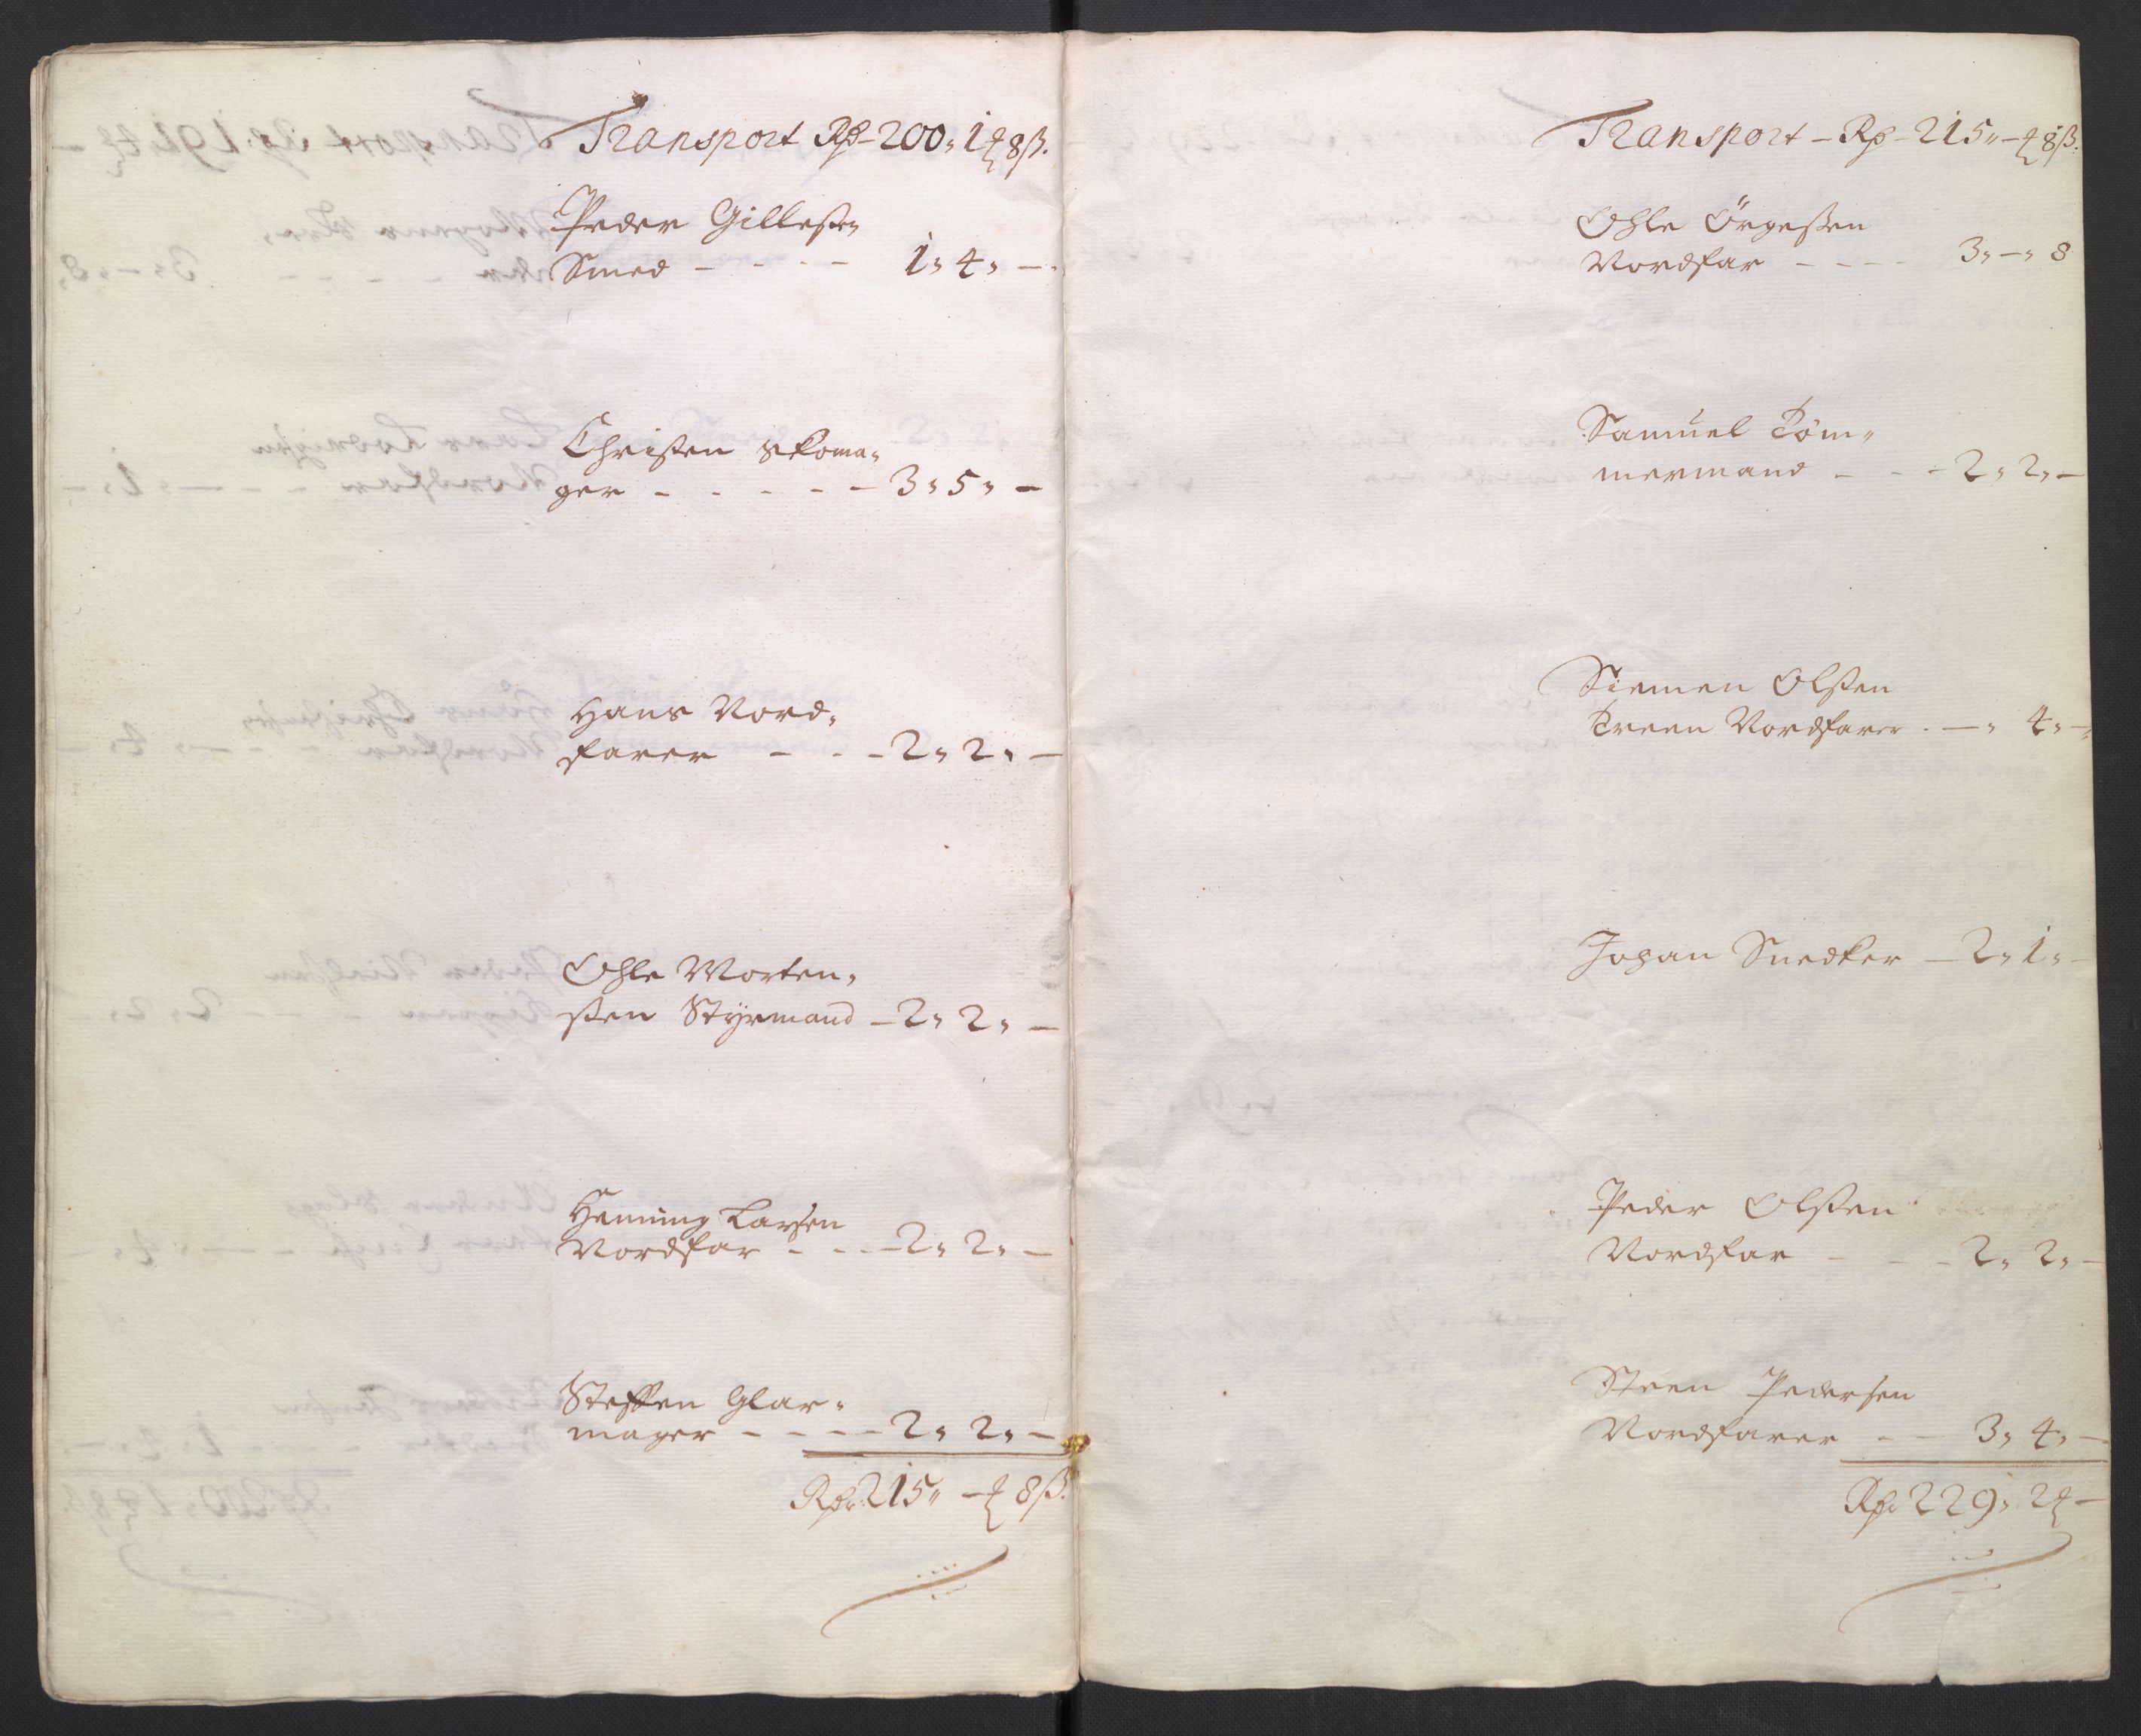 Transport Rd - 200 " 1 ¤ 8 ß.
Peder Gilleßen
Smed - - - - 1 " 4 " -
Christen Skoma"
ger - - - - - 3 " 5 " -
Hans Nord"
farer - - - 2 " 2 " -
Ohle Morten"
ßen Styrmand - 2 " 2 " -
Henning Larsen
Nordfar - - - 2 " 2 " -
Steffen Glar"
mager - - - - 2 " 2 " -
Rdr 215 " - ¤ 8 ß.
Transport - Rd - 215 " - ¤ 8 ß.
Ohle Örgeßen
Nordfar - - - - 3 " - " 8
Samuel Töm"
mermand - - - 2 " 2 " -
Siemen Olßen
Treen Nordfarer - " 4 " -
Johan Snedker - 2 " 1 " -
Peder Olßen
Nordfar - - - 2 " 2 " -
Steen Pedersen
Nordfarer - - 3 " 4 " -
Rdr 229 " 2 ¤ -